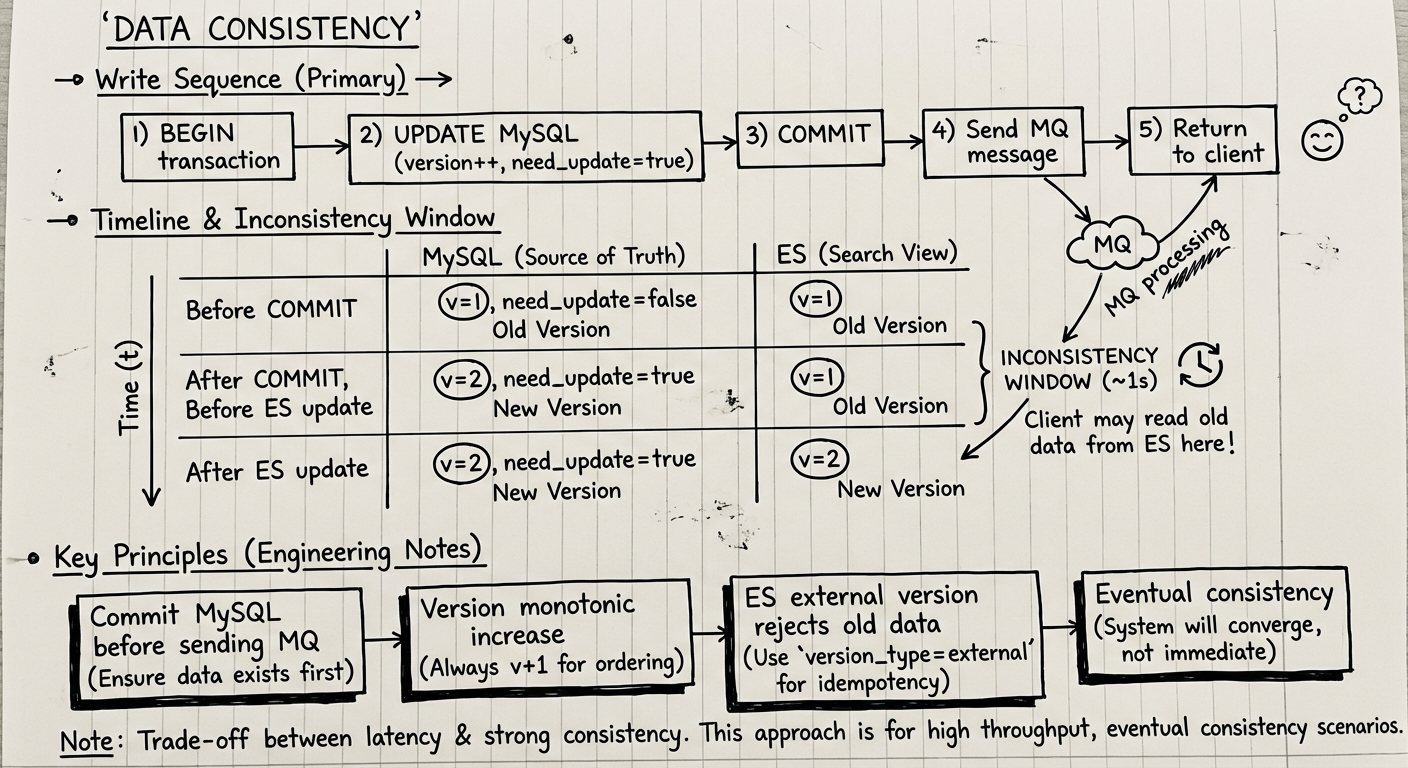 ‘DATA CONSISTENCY’
Write Sequence (Primary)
1) BEGIN
transaction
2) UPDATE MySQL
(version++, need_update=true)
3) COMMIT
4) Send MQ
message
5) Return
to client
?
MQ
MQ processing
Timeline & Inconsistency Window
MySQL (Source of Truth)
ES (Search View)
Time (t)
Before COMMIT
v=1, need_update=false
Old Version
v=1
Old Version
After COMMIT,
Before ES update
v=2, need_update=true
New Version
v=1
Old Version
After ES update
v=2, need_update=true
New Version
v=2
New Version
INCONSISTENCY
WINDOW (~1s)
Client may read old
data from ES here!
Key Principles (Engineering Notes)
Commit MySQL
before sending MQ
(Ensure data exists first)
Version monotonic
increase
(Always v+1 for ordering)
ES external version
rejects old data
(Use ‘version_type=external’
for idempotency)
Eventual consistency
(System will converge,
not immediate)
Note: Trade-off between latency & strong consistency. This approach is for high throughput, eventual consistency scenarios.